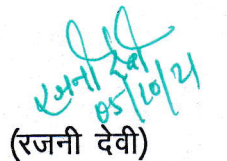 रजनी देवी
05/10/21
(रजनी देवी)